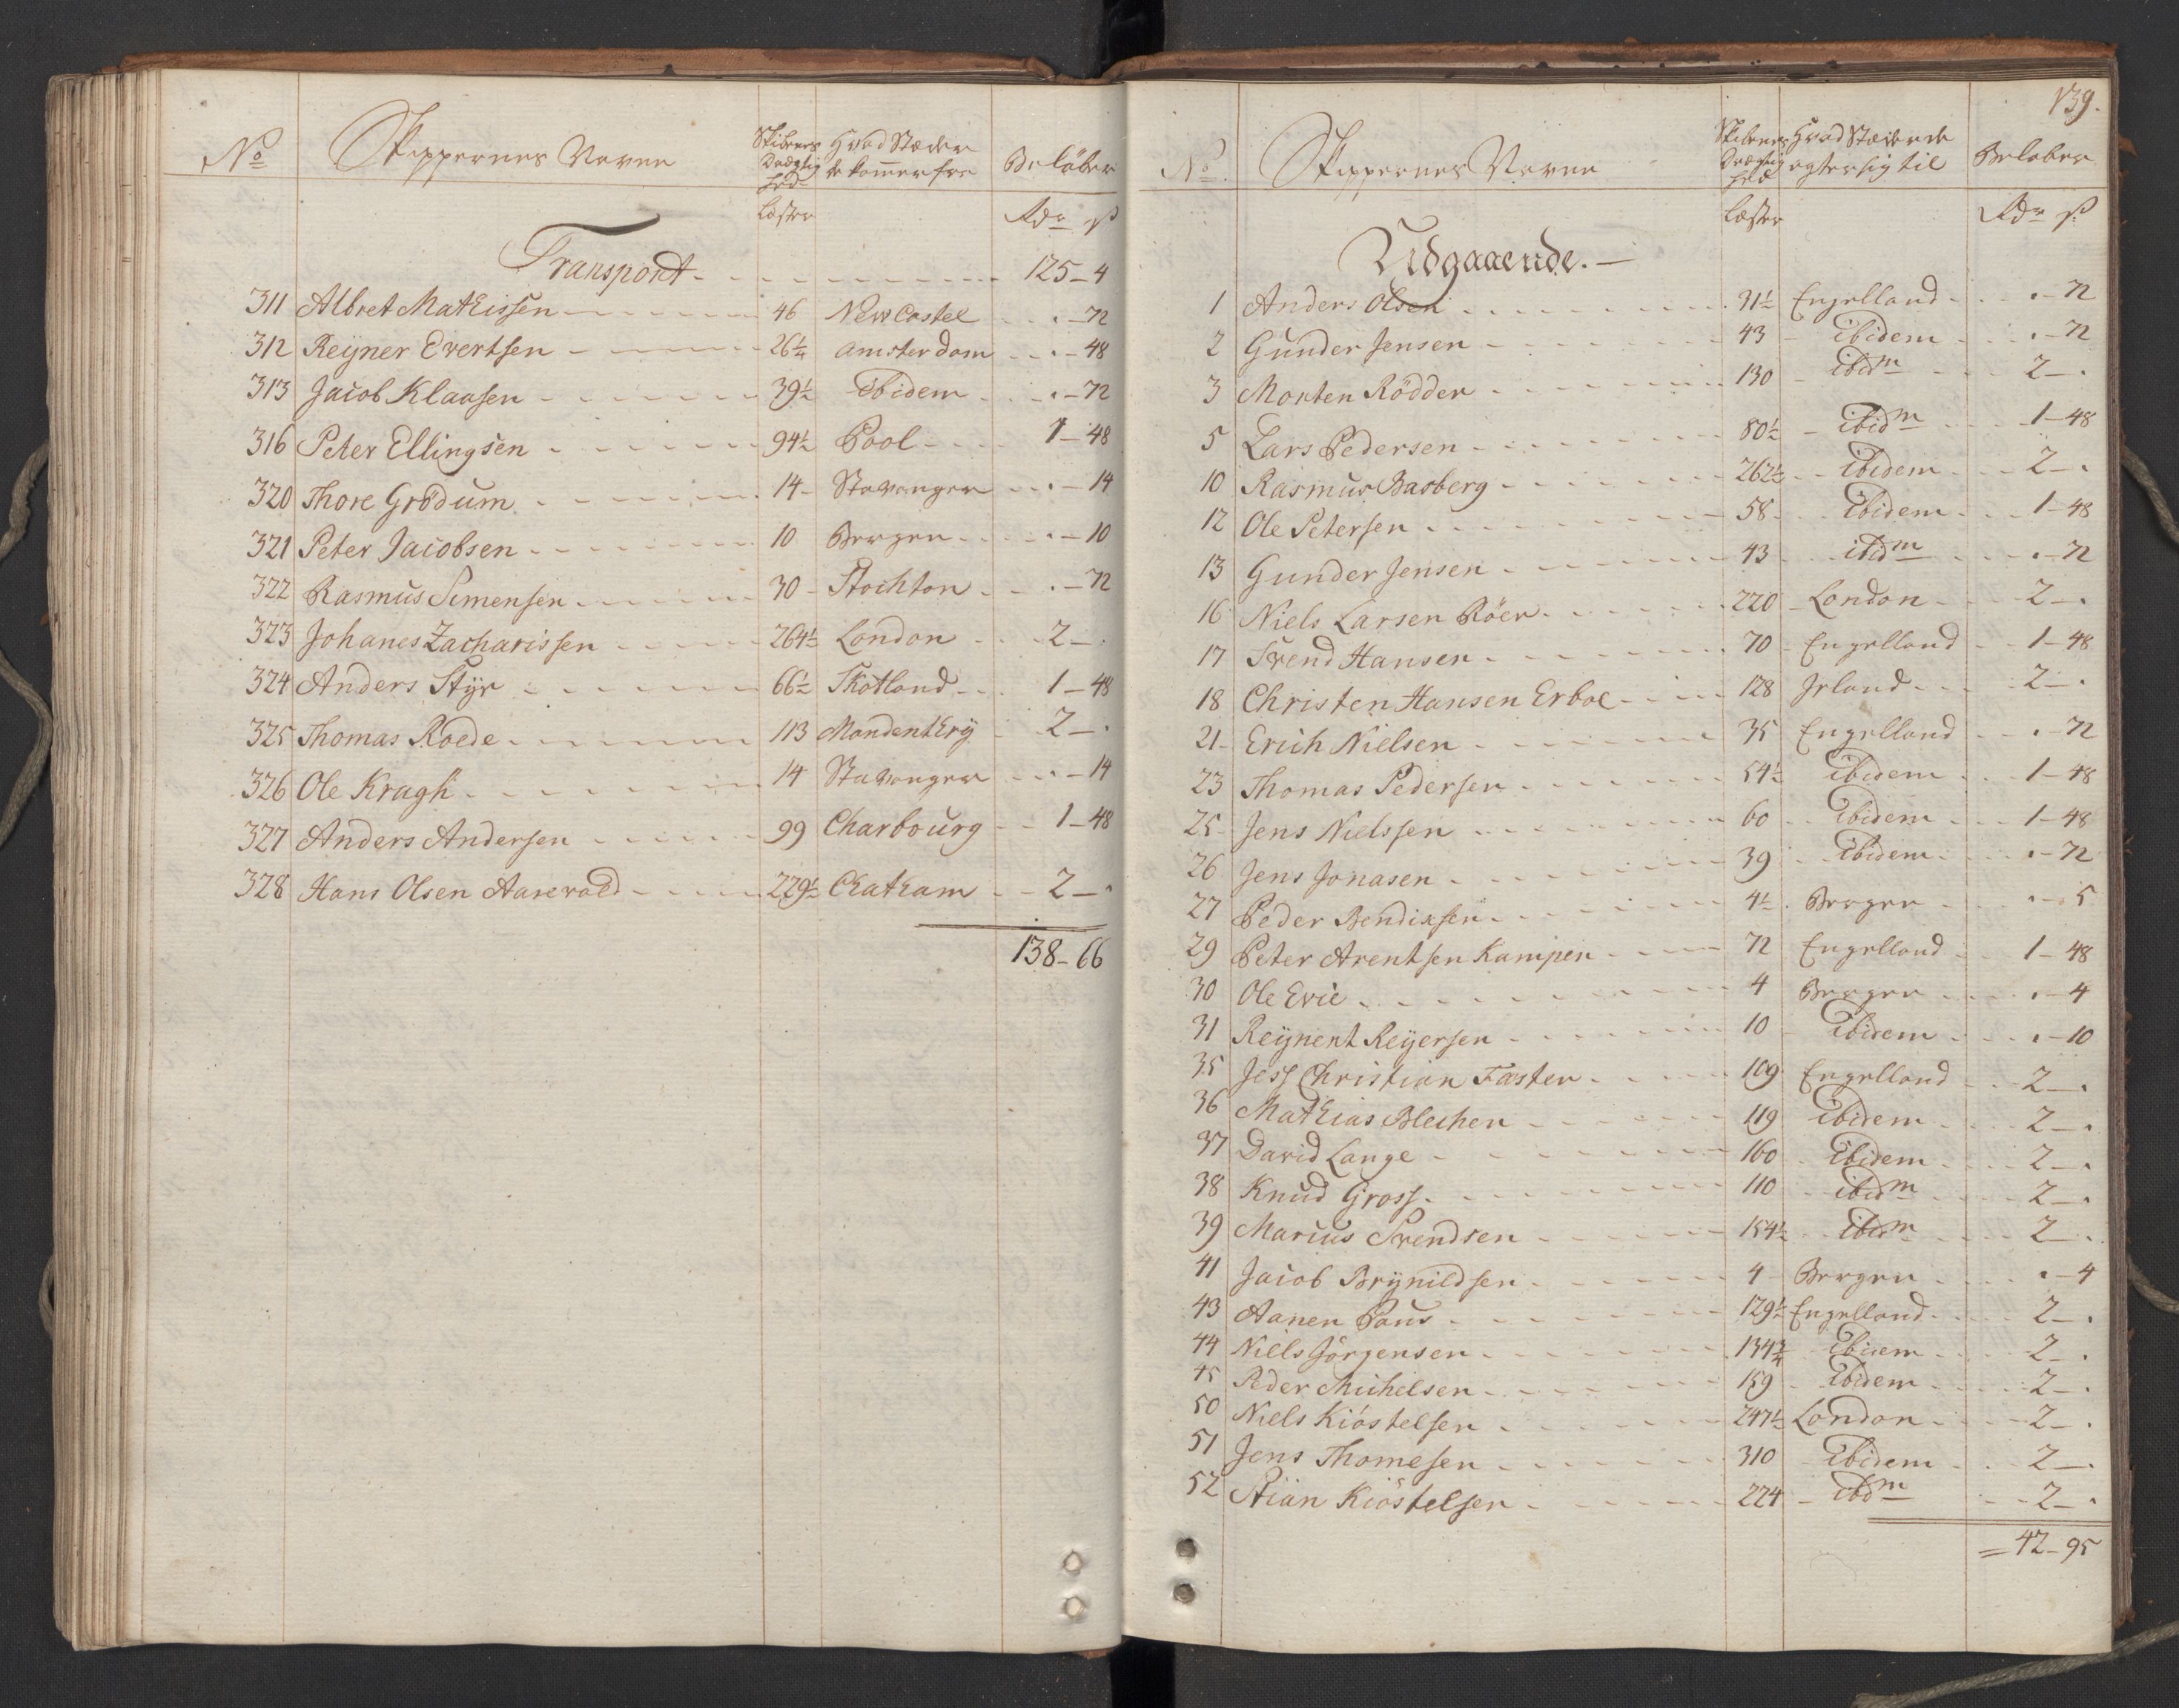 No Skippernes Navne Skibenes Drægtighed Hvad Stæder de kommer fra Beløber
Læster Rdr ß
Transport 125 - 4
311 Albret Mathissen 46 New Castel . - 72
312 Reÿner Evertsen 26¼ Amsterdam . - 48
313 Jacob Klaasen 39½ Ibidem . - 72
316 Peter Ellingsen 94½ Pool 1 - 48
320 Thore Grödum 14 Stavanger . - 14
321 Peter Jacobsen 10 Bergen . - 10
322 Rasmus Simensen 30 Stockton . - 72
323 Johanes Zacharissen 264½ London 2 - .
324 Anders Stÿr 66½ Skotland 1 - 48
325 Thomas Roede 113 Mondenthry 2 - .
326 Ole Kragh 14 Stavanger . - 14
327 Anders Andersen 99 Charbourg 1 - 48
328 Hans Olsen Aarevold 229½ Chatham 2 - .
138 - 66
139.
No. Skippernes Navne Skibenes Drægtighed Hvad Stæder de agter sig til Beløber
Læster Rdr ß
Udgaaende. -
1 Anders Olsen 31½ Engelland . - 72
2 Gunder Jensen 43 Ibidem . - 72
3 Morten Rödder 130 ibidm 2 - .
5 Lars Pedersen 80½ ibidm 1 - 48
10 Rasmus Basberg 262½ Ibidem 2 - .
12 Ole Petersen 58 Ibidem 1 - 48
13 Gunder Jensen 43 ibidm . - 72
16 Niels Larsen Röer 220 London 2 - .
17 Svend Hansen 70 Engelland 1 - 48
18 Christen Hansen Erboe 128 Irland 2 - .
21 Erich Nielsen 35 Engelland . - 72
23 Thomas Pedersen 54½ Ibidem 1 - 48
25 Jens Nielssen 60 Ibidem 1 - 48
26 Jens Jonasen 39 Ibidem . - 72
27 Peder Bendixsen 4½ Bergen . - 5
29 Peter Arentsen Kampen 72 Engelland 1 - 48
30 Ole Evie 4 Bergen . - 4
31 Reÿnert Reÿersen 10 Ibidem . - 10
35 Jess Christian Faster 109 Engelland 2 - .
36 Mathias Blechen 119 Ibidem 2 - .
37 David Lange 160 Ibidem 2 - .
38 Knud Gross 110 ibidm 2 - .
39 Marius Svendsen 154½ ibidm 2 - .
41 Jacob Brÿnildsen 4 Bergen . - 4
43 Aanen Paus 129½ Engelland 2 - .
44 Niels Jörgensen 134¾ Ibidem 2 - .
45 Peder Michelsen 159 Ibidem 2 - .
50 Niels Kiöstelsen 247½ London 2 - .
51 Jens Thomesen 310 Ibidem 2 - .
52 Stian Kiöstelsen 224 ibdm 2 - .
= 42 - 95